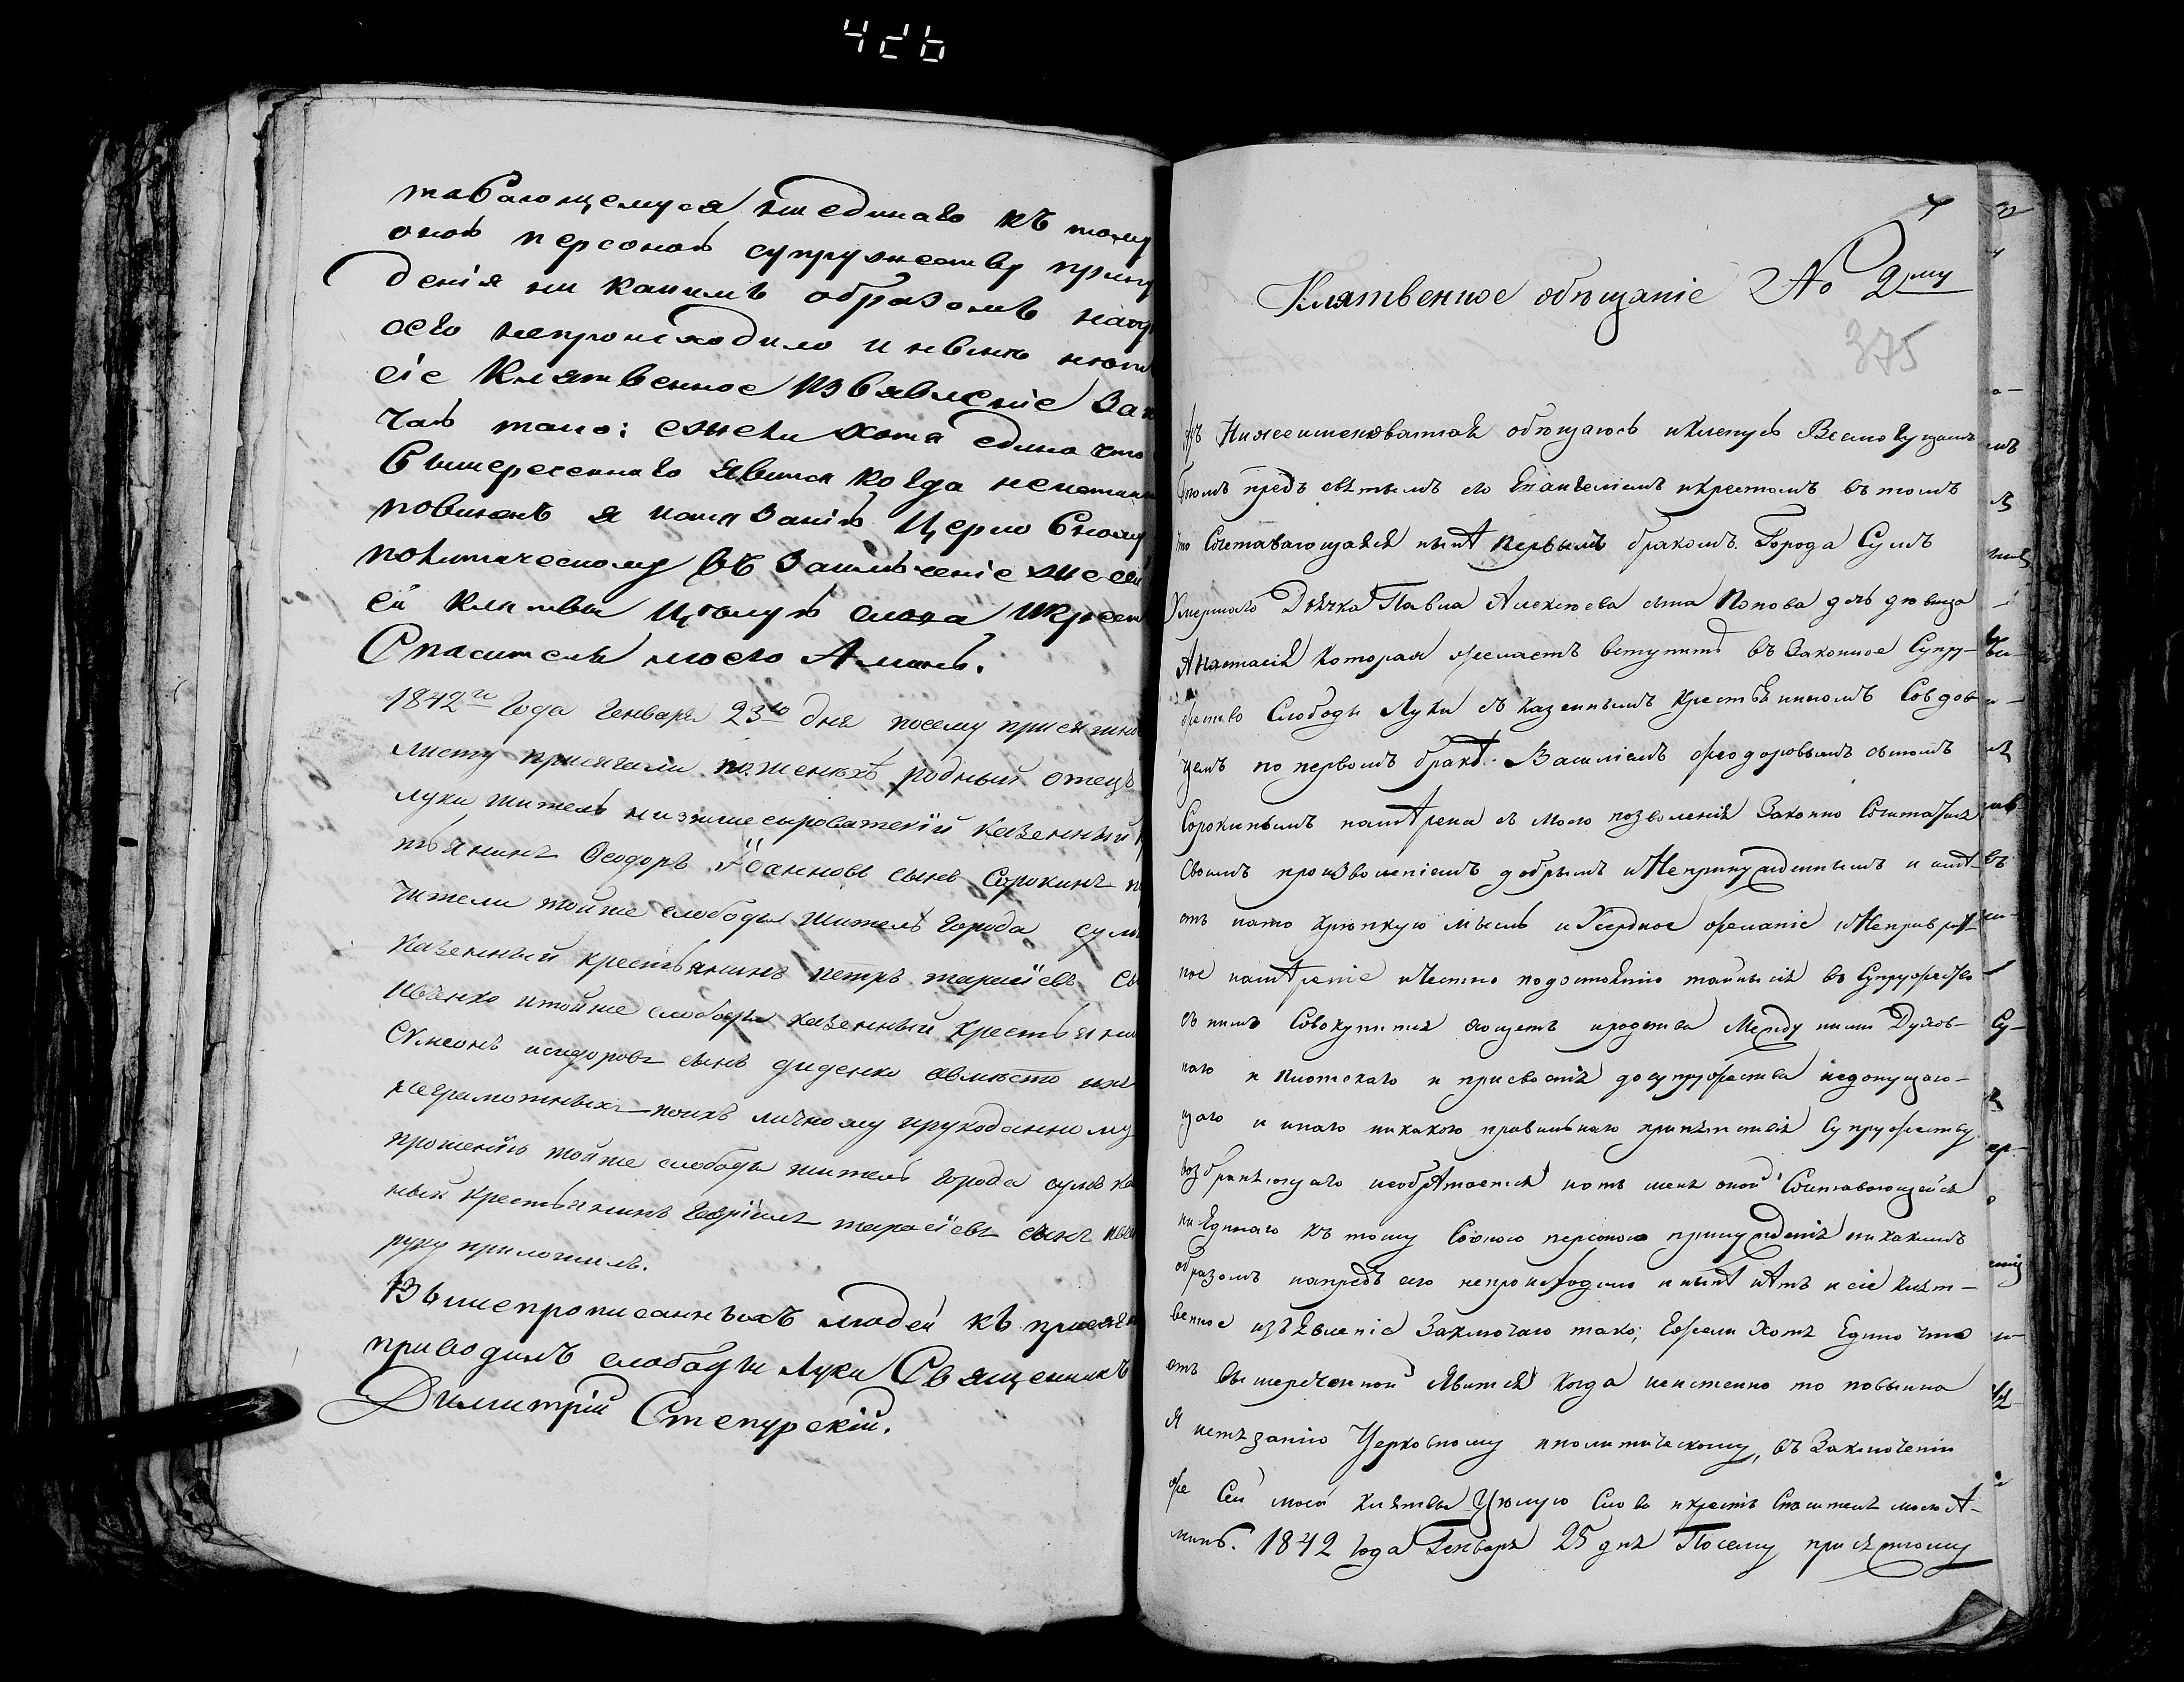 426
тавающемуся ни единаго къ тому
оною персоною супружеству прину
денія ни какимъ образомъ напр
сего непроисходило и нынѣ нѣтъ
сіе Клятвенное Изъявленіе Зак
чаю тако: ежели хотя едино что
Вышереченнаго явится когда неистинн
повиненъ я истязанію Церковному
политическому въ Заключеніе же сей
ей клятвы Цѣлую слова икрест
Спасителя моего Аминь.
1842го Года Генваря 23го дня посему присяжно
листу присягали по женихѣ родный отецъ
луки житель низшесыроватскій казенный к
тьянинъ Ѳеодоръ Іоанновъ сынъ Сорокинъ п
жители тойже слободы житель города сум
Казенный крестьянинъ петръ тарасіевъ сы
Ивченко итойже слободы казенный крестьянин
Сѵмеонъ исидоровъ сынъ диденко авмѣсто ихъ
неграмотныхъ поихъ личному ирукоданному
прошенію тойже слободы житель города сумъ ка
ный крестьянинъ Гавріилъ тарасіевъ сынъ Ивч
руку приложилъ.
Вышепрописанныхъ людей къ присяг
приводилъ слободы Луки Священникъ
Димитрій Степурскій.
7
Клятвенное обѣщаніе № 2му
375
Азъ Нижеименованная обѣщаюсь иклянусь Всемогущимъ
Богомъ предъ святымъ его Евангеліемъ икрестомъ въ томъ
что Сочетавающаяся нынѣ первымъ бракомъ Города Сумъ
Умершаго Дячка Павла Алексѣева сына Попова дочь дѣвица
Анастасія которая желаетъ вступить въ Законное Супру-
жество Слободы Луки съ казеннымъ крестьяниномъ Совдов
цемъ по первомъ бракѣ Василіемъ Ѳеодоровымъ сыномъ
Сорокинымъ намѣрена съ моего позволенія Законно Сочетатися
своимъ произволеніемъ добрымъ иНепринужденнымъ и имѣ-
етъ нато крѣпкую мысль и Усердное желаніе иНепревратное
намѣреніе иЧестно подостоянію тайныся въ Супружество
съ нимъ Совокупится ащетъ иродства Между ними Духов-
наго и плотскаго и присвоенія досупружества недопущаю-
щаго и инаго никакого правильнаго припятствія Супружеству
возбраняющаго необрѣтается ноть меня оной Сочетавающейся
ни Единаго къ тому Соѣною персоною принужденія никакимъ
образомъ напредь сего непроисходило и нынѣ нѣтъ и сіе клят-
венное изъявленіе Заключаю тако; Ежели Хотя Едино что
отъ вышереченной Явится Когда неистенно то повынна
Я истязанію Церковному иполитическому, въ Заключеніи
же Сей моей клятвы Цѣлую Слова икрестъ Спасителя моего А-
минь. 1842 года Генваря 25 дня Посему присяжному